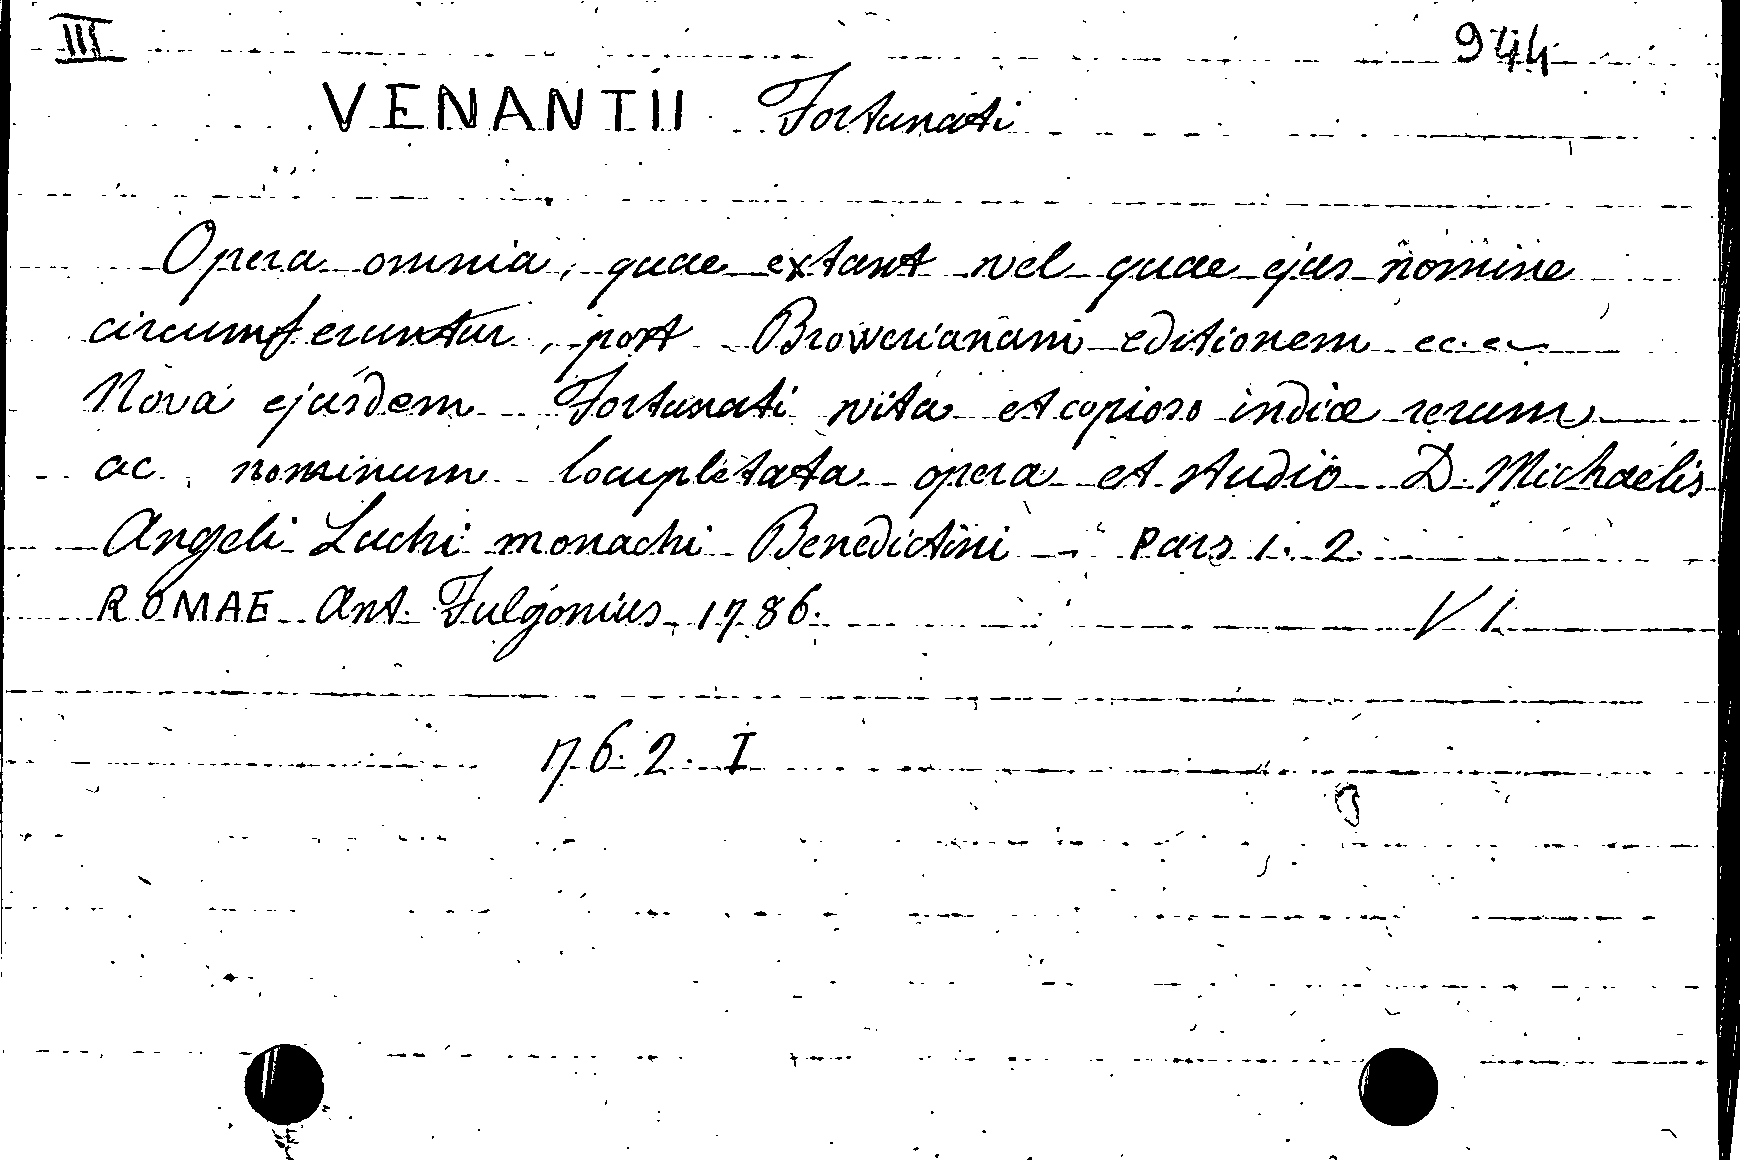 III 944
VENANTII Fortunati
Opera omnia, quae extant vel quae ejus nomine
circumferuntur, post Browerianam editionem ec. ec
Nova ejusdem Fortunati vita et copioso indice rerum
ac nominum locupletata opera et studio D. Michaelis
Angeli Luchi monachi Benedictini - Pars 1. 2
ROMAE Ant. Fulgonius 1786. V 1
76. 2. I